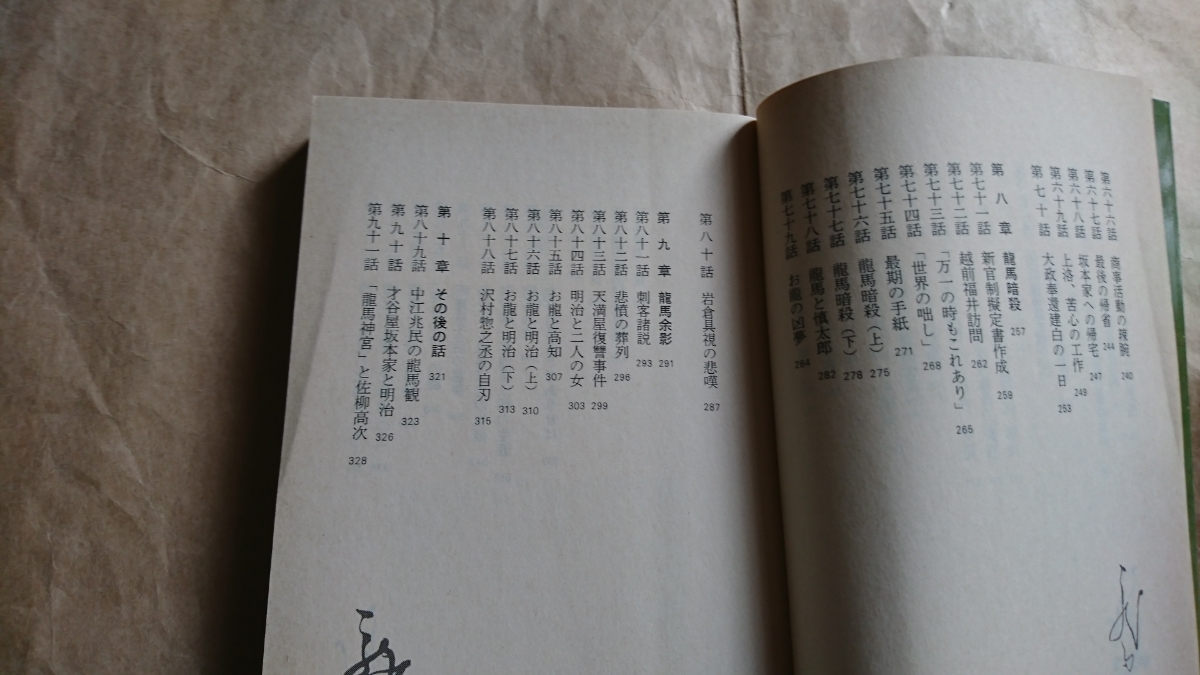 第六十六話 商事活動の辣腕 240
第六十七話 最後の帰省 244
第六十八話 坂本家への帰宅 247
第六十九話 上洛、苦心の工作 249
第七十話 大政奉還建白の一日 253
第八章 龍馬暗殺 257
第七十一話 新官制擬定書作成 259
第七十二話 越前福井訪問 262
第七十三話 「万一の時もこれあり」 265
第七十四話 「世界の咄し」 268
第七十五話 最期の手紙 271
第七十六話 龍馬暗殺（上） 275
第七十七話 龍馬暗殺（下） 278
第七十八話 龍馬と慎太郎 282
第七十九話 お龍の凶夢 284
第八十話 岩倉具視の悲嘆 287
第九章 龍馬余影 291
第八十一話 刺客諸説 293
第八十二話 悲憤の葬列 296
第八十三話 天満屋復讐事件 299
第八十四話 明治と二人の女 303
第八十五話 お龍と高知 307
第八十六話 お龍と明治（上） 310
第八十七話 お龍と明治（下） 313
第八十八話 沢村惣之丞の自刃 315
第十章 その後の話 321
第八十九話 中江兆民の龍馬観 323
第九十話 才谷屋坂本家と明治 326
第九十一話 「龍馬神宮」と佐柳高次 328